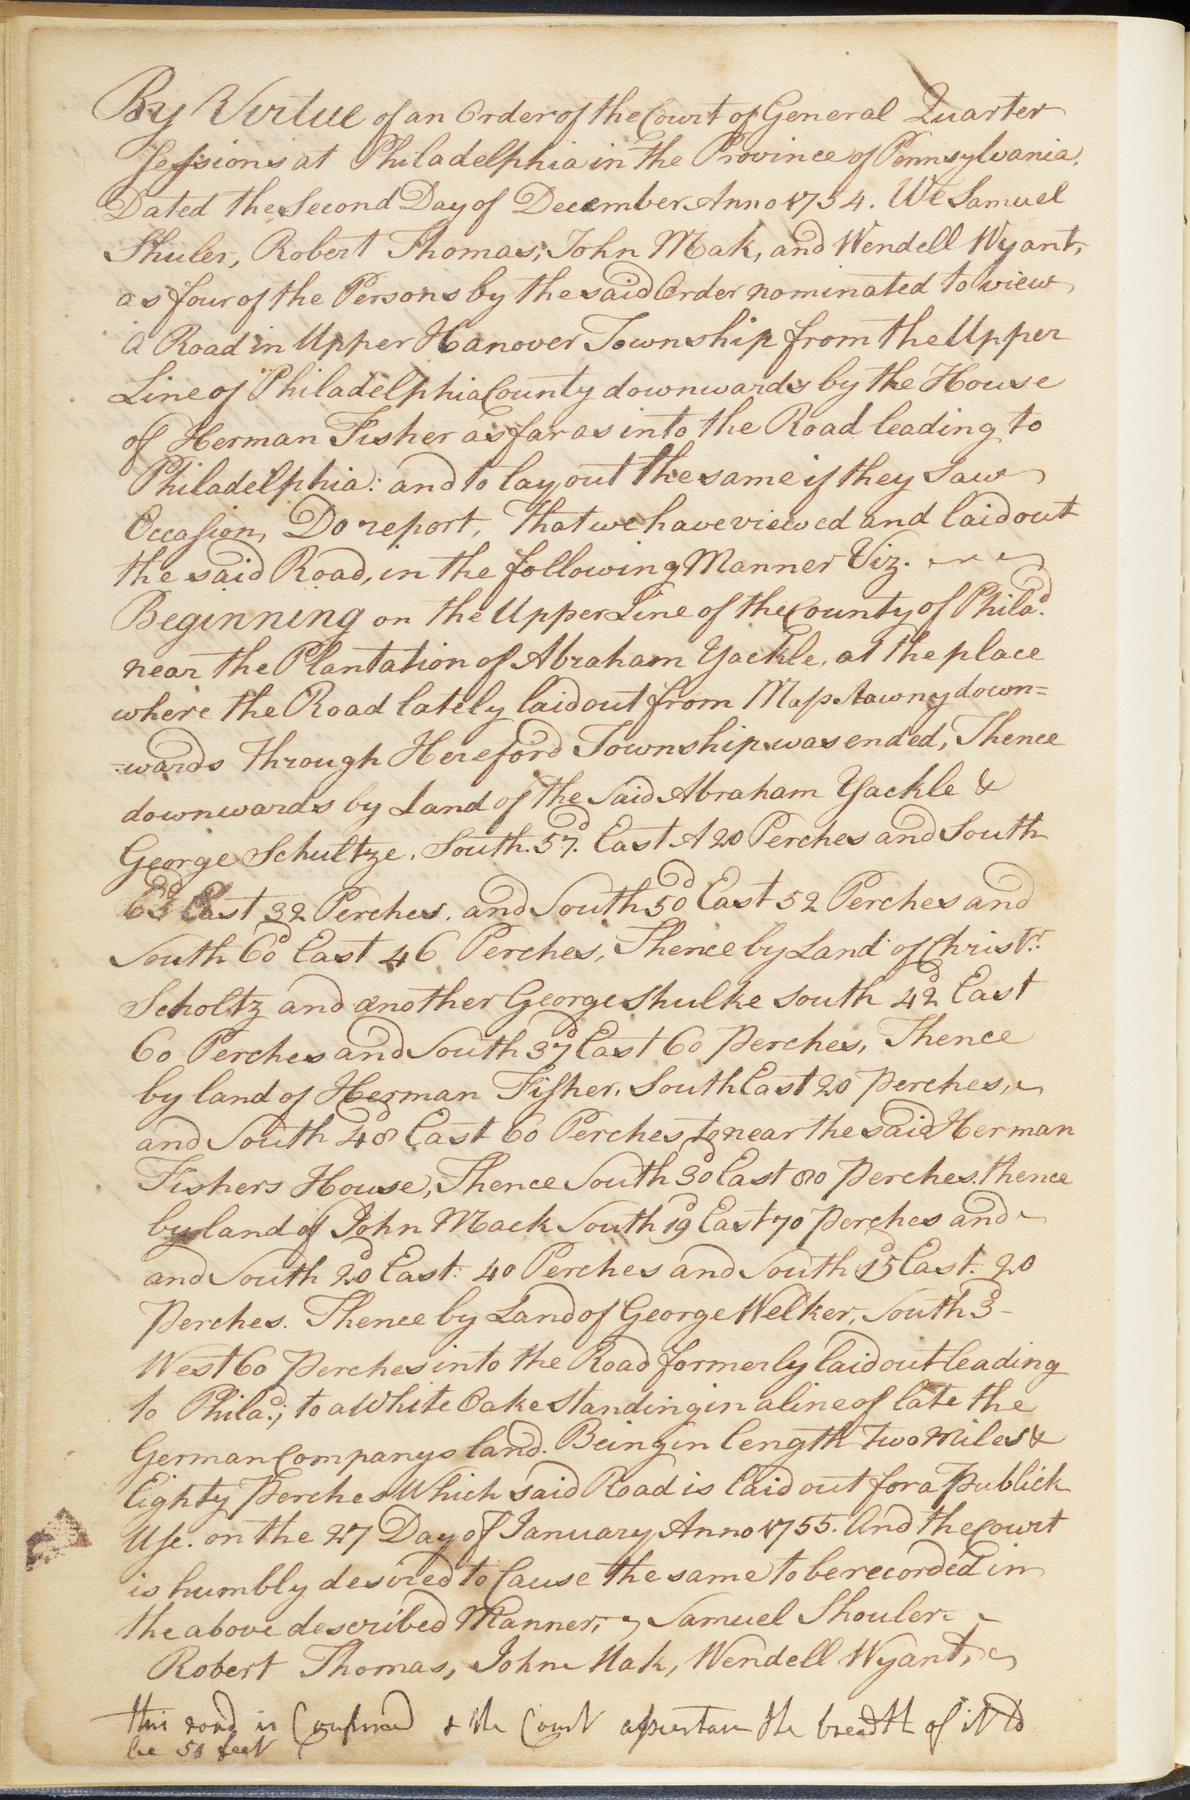 By Virtue of an Order of the Court of General Quarter
Sessions at Philadelphia in the Province of Pennsylvania,
Dated the Second Day of December Anno 1754. We Samuel
Shuler, Robert Thomas, John Mak, and Wendell Wyant,
as four of the Persons by the said Order nominated to view
a Road in Upper Hanover Township from the Upper
Line of Philadelphia County downwards by the House
of Herman Fisher as far as into the Road leading to
Philadelphia: and to lay out the same if they Saw
Occasion, Do report, That we have viewed and laid out
the said Road, in the following Manner Viz.
Beginning on the Upper Line of the County of Philad.
near the Plantation of Abraham Yackle, at the place
where the Road lately laid out from Maptawny down=
-wards through Hereford Township was ended, Thence
downwards by Land of the Said Abraham Yackle &
George Schultze. South. 57d. East 120 Perches and South
63d East 32 Perches. and South 50d East 52 Perches and
South 60d East 46 Perches, Thence by Land of Christr.
Scholtz and another George Shulke South 42d East
60 Perches and South 37d East 60 Perches, Thence
by land of Herman Fisher, South East 20 Perches,
and South 48d East 60 Perches, to near the said Herman
Fishers House, Thence South 30d East 80 Perches. thence
by land of John Mack South 19d East 70 Perches and
and South 20d East. 40 Perches and South 15d East. 20
Perches. Thence by Land of George Welker, South 3d
West 60 Perches into the Road formerly laid out leading
to Philad.; to a White Oake Standing in a line of late the
German Companys land. Being in length Two Miles &
Eighty Perches Which said Road is laid out for a Publick
Use. on the 27 Day of January Anno 1755. And the Court
is humbly desired to Cause the same to be recorded in
the above described Manner, Samuel Shouler
Robert Thomas, John Mak, Wendell Wyant,
this road is Confirmed & the Court the breadth of it to
be 50 feet